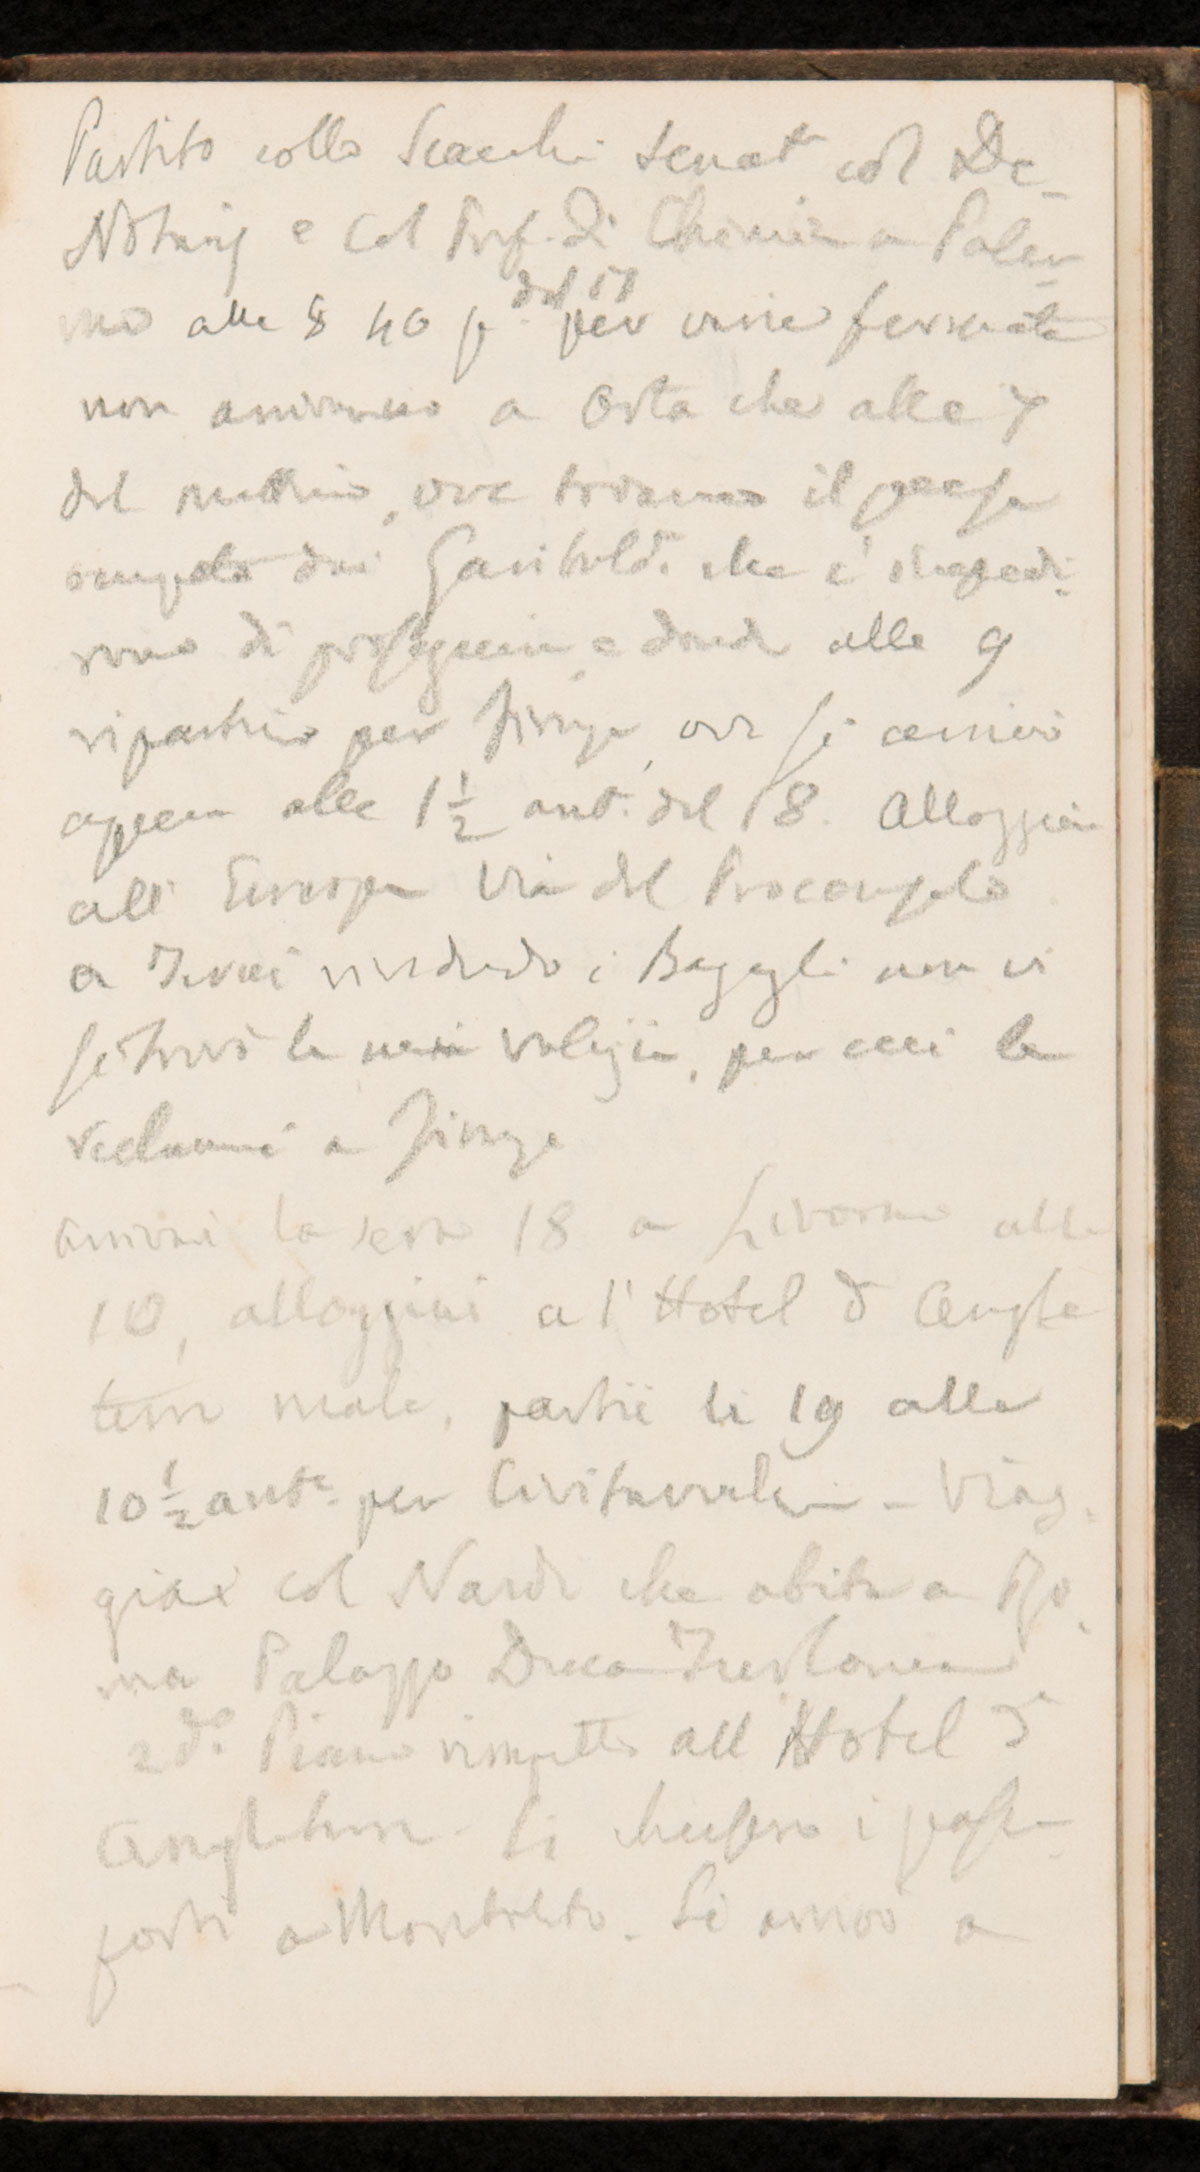 Partito collo Scacchi Senatr col De-
Notaris e col Prof. di Chimica a Paler-
mo alle 8 40 p. del 17 per varie fermate
non arrivammo a Orta che alle 7
del mattino, ove trovammo il paese
occupato dai Garibald. che c'impedi-
rono di proseguire e donde alle 9
ripartirono per Firenze, ove si arrivò
appena alle 1 ½ ant. del 18. Alloggiai
all' Europa Via del Proconsolo
a Terni vivedendo i Bagagli non vi
si trovò la mia valigia, per cui la
reclamai a Firenze
arrivai la sera 18 a Livorno alle
10, alloggiai a l'Hotel d'Angle
terre male, partii li 19 alle
10 ½ antе. per Civitavecchia - Viag-
giai col Nardi che abita a Ro-
ma Palazzo Duca Torlonia
2do. Piano rimpetto all Hotel d'
Angleterre. Si chiesero i passa-
porti a Montalto. Si arrivò a